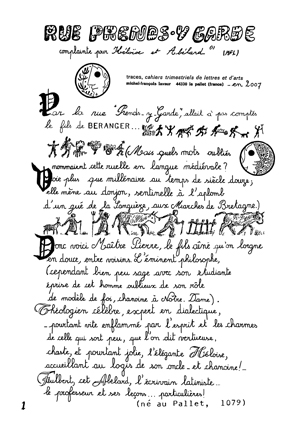 RUE PRENDS-Y GARDE
complainte pour Héloïse et Abélard
traces, cahiers trimestriels de lettres et d'arts
michel-françois lavaur 44330 le pallet (france) - en 2007
Par la rue "Prends-y Garde", allait à pas comptés
le fils de BERANGER...
(Mais quels mots oubliés
nommaient cette ruelle en langue médiévale?
Voie plus que millénaire au temps de siècle douze,
elle mène au donjon, sentinelle à l'aplomb
d'un gué de la Sanguèze, aux Marches de Bretagne.)
Donc voici Maître Pierre, le fils aîné qu'on lorgne
en douce, entre voisins. L'éminent philosophe,
(cependant bien peu sage avec son étudiante
éprise de cet homme oublieux de son rôle
de modèle de foi, chanoine à Notre-Dame).
Théologien célèbre, expert en dialectique,
pourtant vite enflammé par l'esprit et les charmes
de celle qui sort peu, que l'on dit vertueuse,
chaste, et pourtant jolie, l'élégante Héloïse,
accueillant au logis de son oncle - et chanoine! -
Fulbert, cet Abélard, l'écrivain latiniste...
le professeur et ses leçons... particulières!
(né au Pallet, 1079)
1